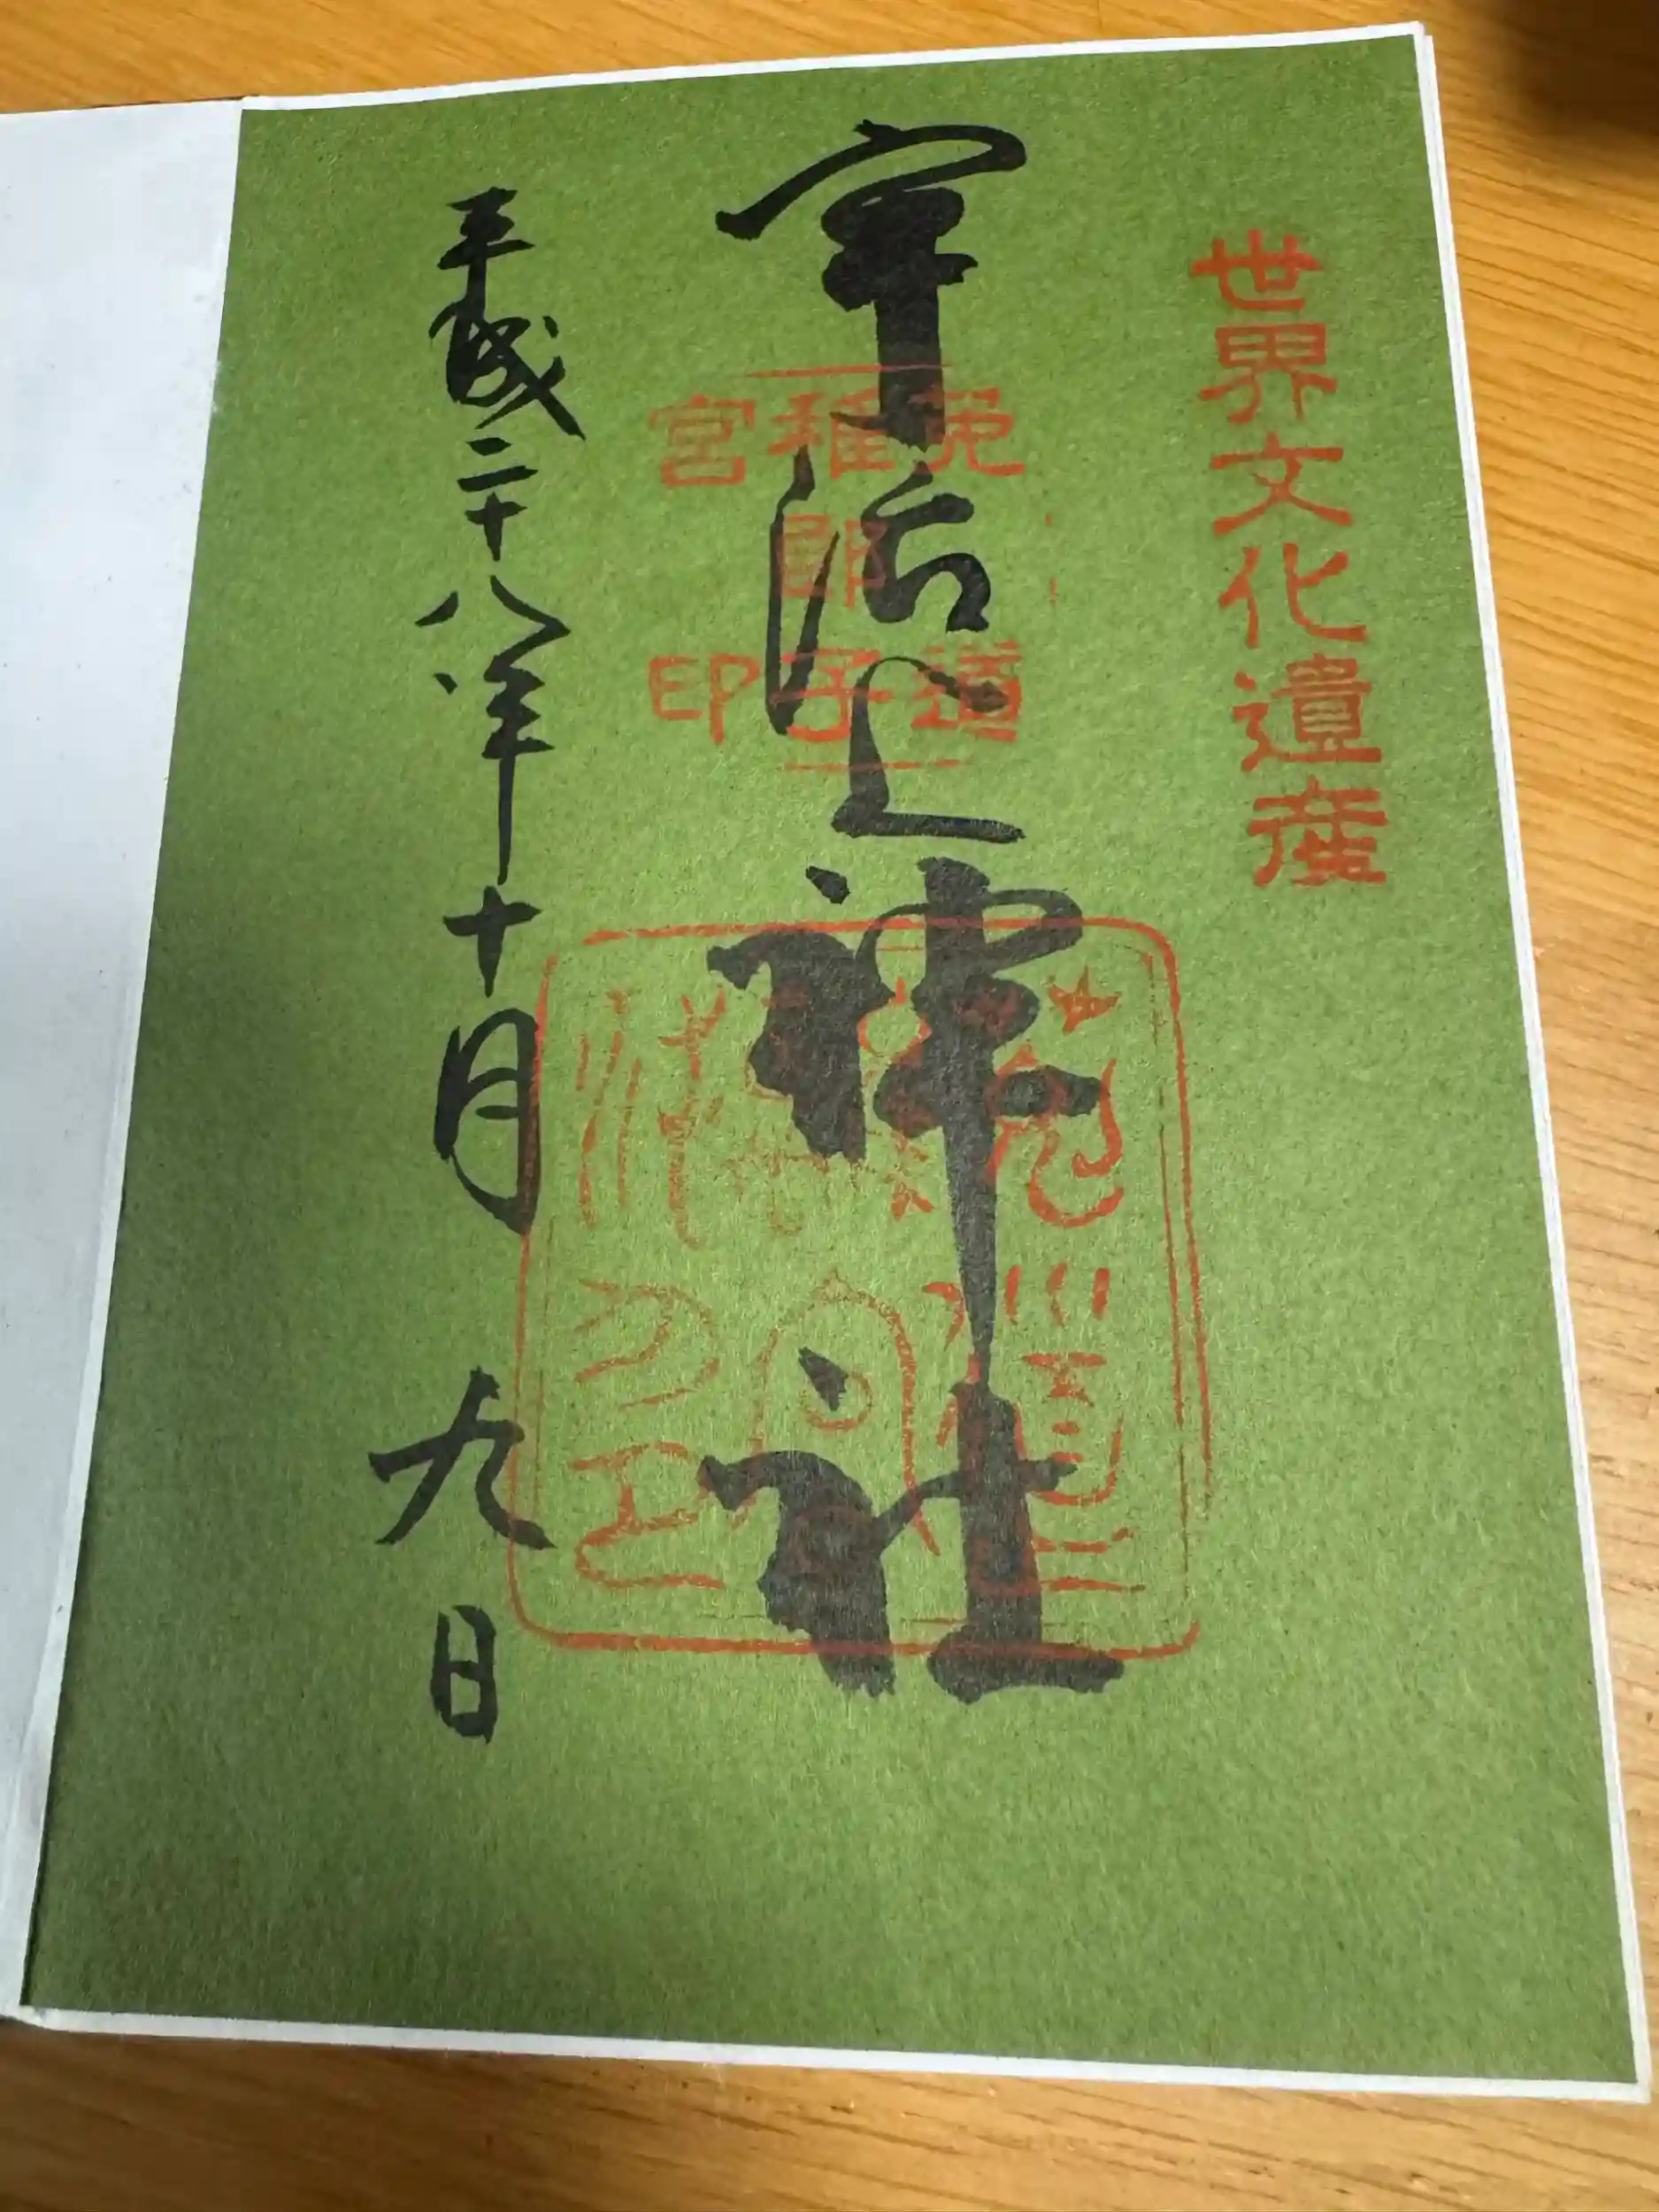 世界文化遺産
宇治上神社
菟道
稚郎子
宮印
平成二十八年十月九日